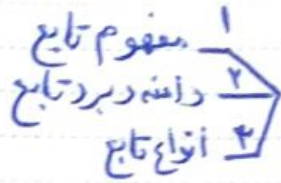 ۱ مفهوم تابع
۲ دامنه و برد تابع
۳ انواع تابع